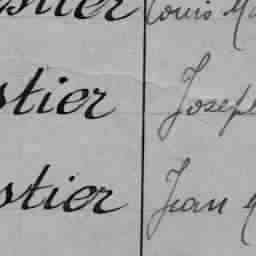 stier Louis Ma
stier Joseph
stier Jean